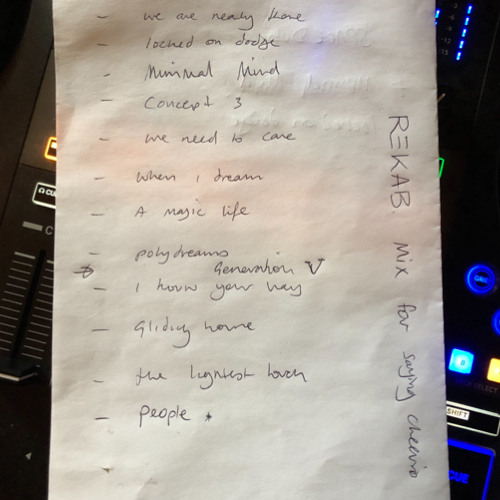 - we are nearly there
- locked on dodge
- Minimal Mind
- Concept 3
- we need to care
- when i dream
- A magic life
- polydreams
Generation V
- I know your way
- Gliding home
- the lightest touch
- People *
REKAB. Mix for saying cheerio
CU
C
SHIFT
CUE